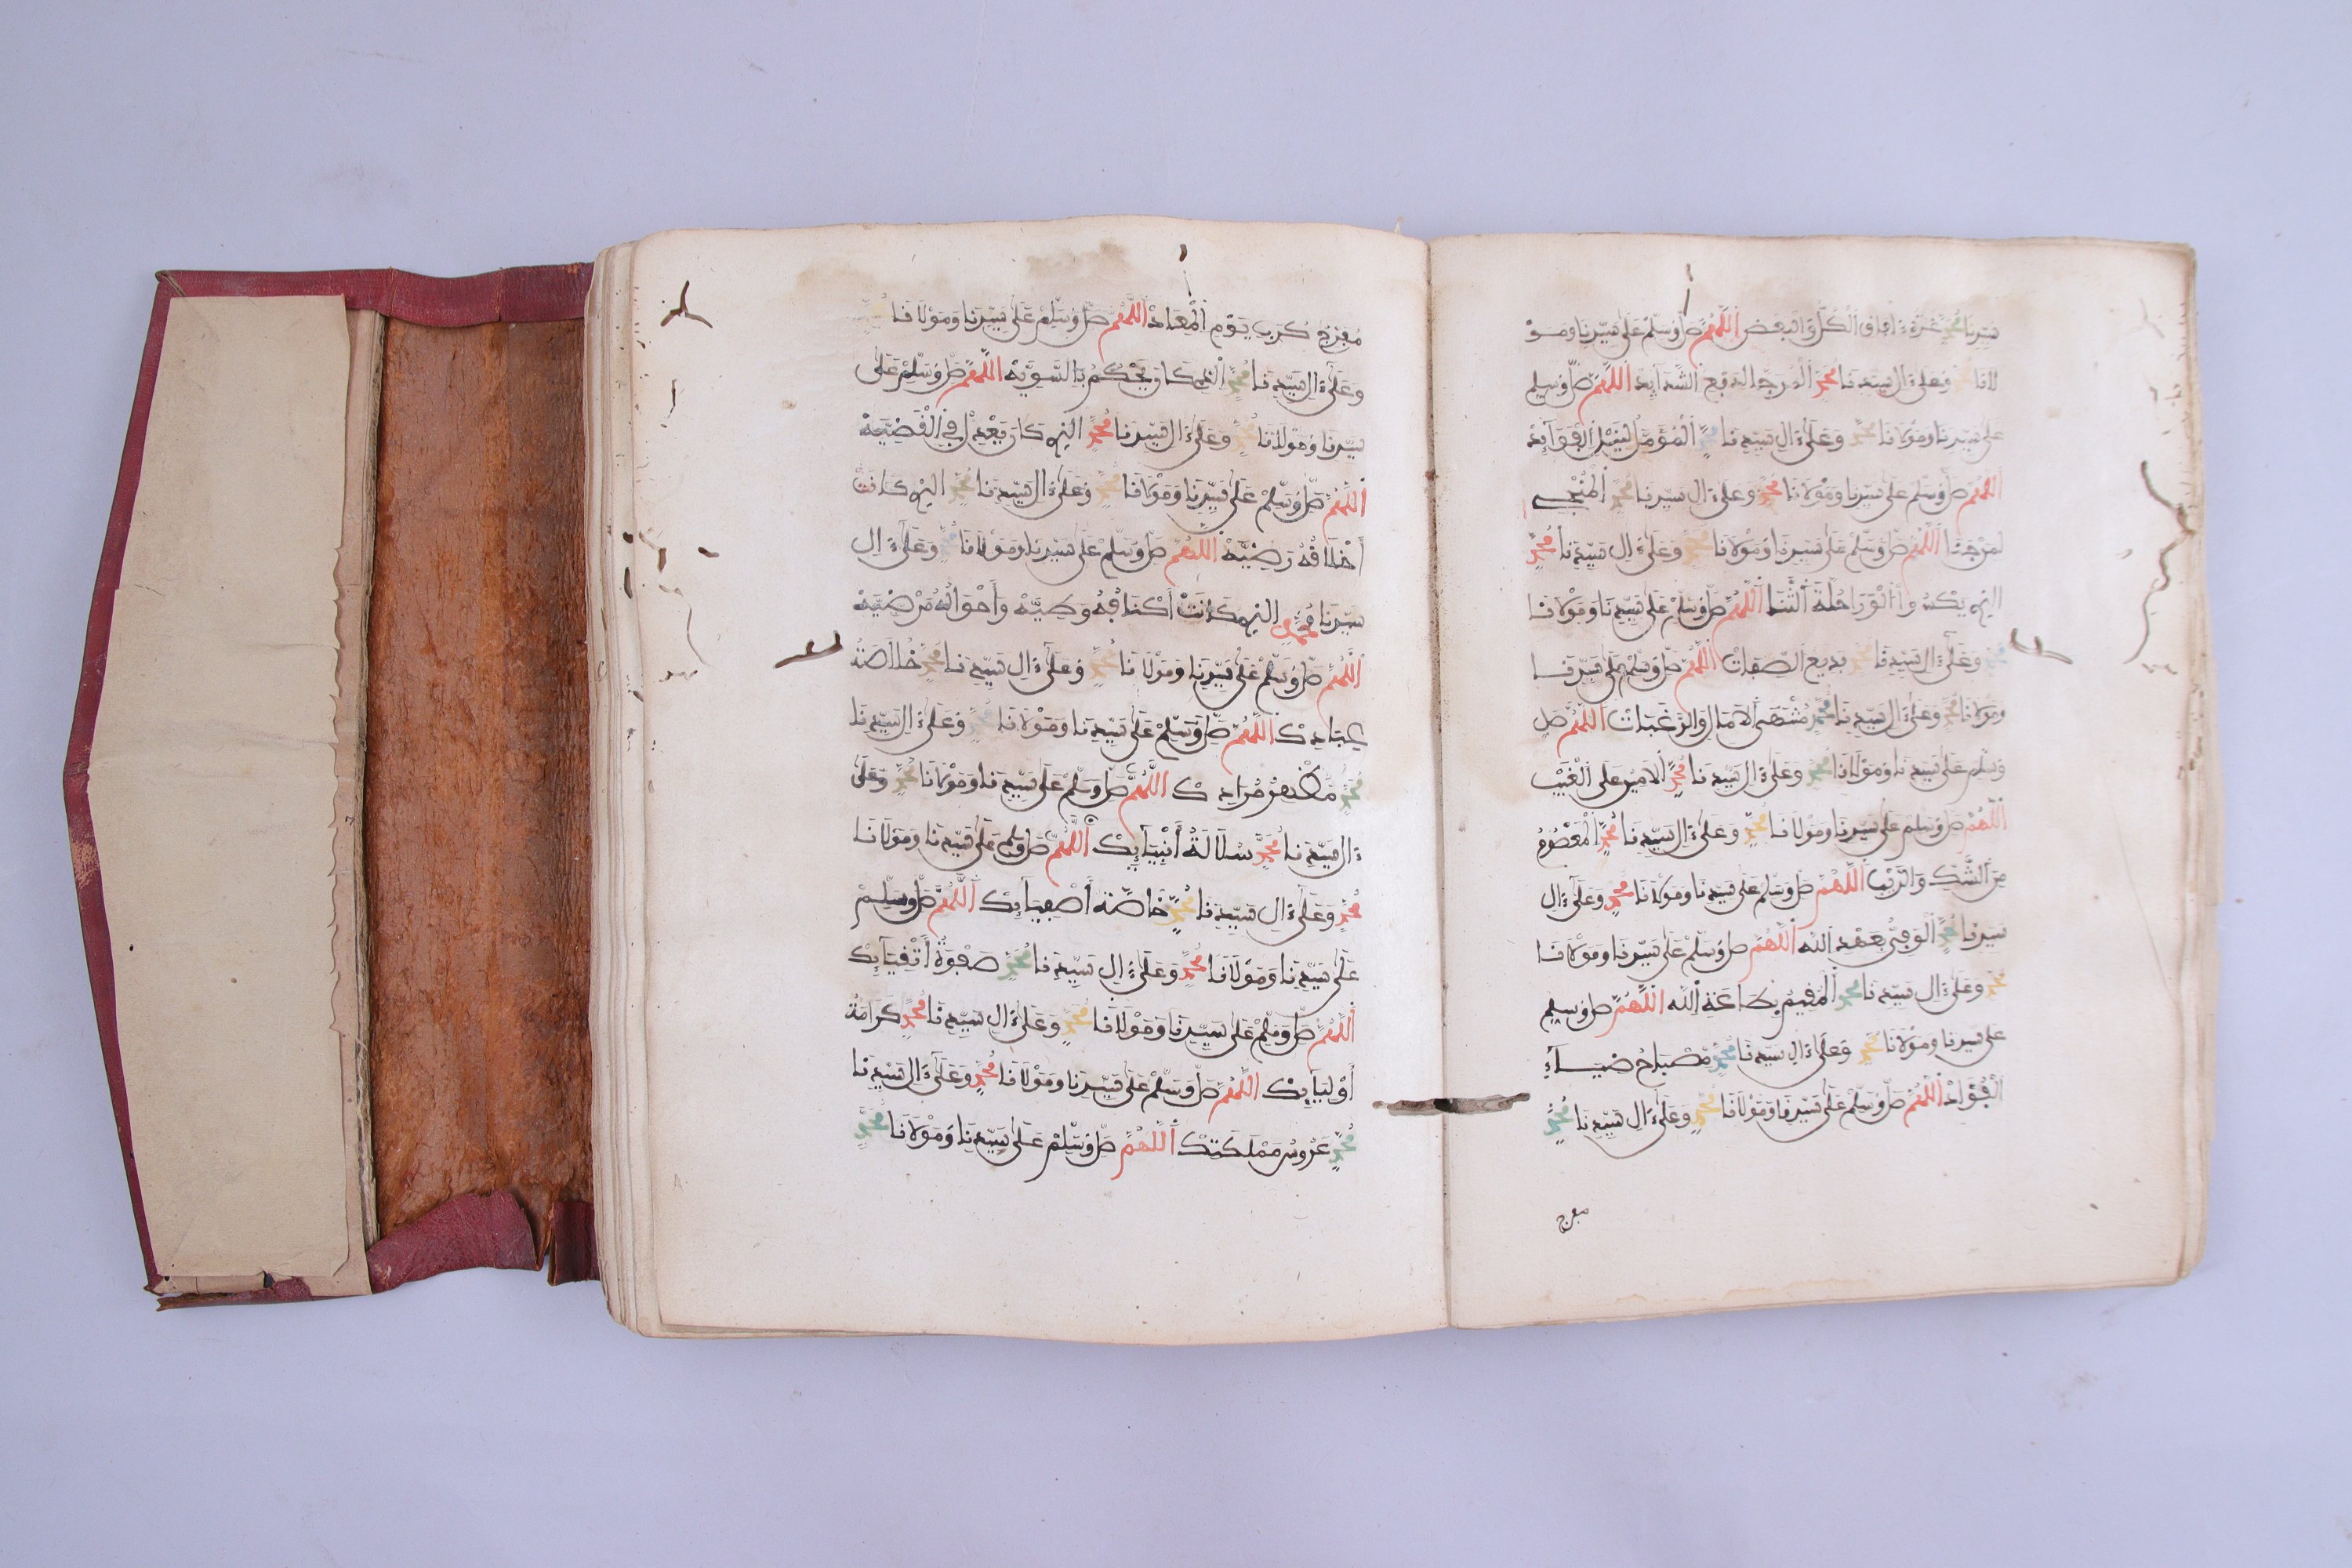 سيدنا محمد غرة الكل والبعض اللهم صل وسلم على سيدنا ومو
لانا محمد وعلى ءال سيدنا محمد المرجا لدفع الشدآيد اللهم صل وسلم
على سيدنا ومولانا محمد وعلى ءال سيدنا محمد المؤمل لنيل الفوآيد
اللهم صل وسلم على سيدنا ومولانا محمد وعلى ءال سيدنا محمد المنجي
اللهم صل وسلم على سيدنا ومولانا محمد وعلى ءال سيدنا محمد
الثنا اللهم صل وسلم على سيدنا ومولانا
محمد وعلى ءال سيدنا محمد بديع الصفات اللهم صل وسلم على سيدنا
ومولانا محمد وعلى ءال سيدنا محمد منتهى الامال والرغبات اللهم صل
وسلم على سيدنا ومولانا محمد وعلى ءال سيدنا محمد الامين على الغيب
اللهم صل وسلم على سيدنا ومولانا محمد وعلى ءال سيدنا محمد المعصوم
من الشك والريب اللهم صل وسلم على سيدنا ومولانا محمد وعلى ءال
سيدنا محمد الوفي بعهد الله اللهم صل وسلم على سيدنا ومولانا
محمد وعلى ءال سيدنا محمد المقيم بطاعة الله اللهم صل وسلم
على سيدنا ومولانا محمد وعلى ءال سيدنا محمد مصباح ضيآء
الفؤاد اللهم صل وسلم على سيدنا ومولانا محمد وعلى ءال سيدنا محمد
مفرج
مفرج كرب يوم المعاد اللهم صل وسلم على سيدنا ومولانا محمد
وعلى ءال سيدنا محمد الذي كان يحكم بالسوية اللهم صل وسلم على
سيدنا ومولانا محمد وعلى ءال سيدنا محمد الذي كان يعدل في القضية
اللهم صل وسلم على سيدنا ومولانا محمد وعلى ءال سيدنا محمد الذي كانت
أخلاقه رضية اللهم صل وسلم على سيدنا ومولانا محمد وعلى ءال
سيدنا محمد الذي كانت أكنافه وطية وأحواله مرضية
اللهم صل وسلم على سيدنا ومولانا محمد وعلى ءال سيدنا محمد خلاصة
عبادك اللهم صل وسلم على سيدنا ومولانا محمد وعلى ءال سيدنا
محمد مظهر مرادك اللهم صل وسلم على سيدنا ومولانا محمد وعلى
ءال سيدنا محمد سلالة أنبيآيك اللهم صل وسلم على سيدنا ومولانا
محمد وعلى ءال سيدنا محمد خاصة أصفيآيك اللهم صل وسلم
على سيدنا ومولانا محمد وعلى ءال سيدنا محمد صفوة أتقيآيك
اللهم صل وسلم على سيدنا ومولانا محمد وعلى ءال سيدنا محمد كرامة
أوليآيك اللهم صل وسلم على سيدنا ومولانا محمد وعلى ءال سيدنا
محمد عروس مملكتك اللهم صل وسلم على سيدنا ومولانا محمد